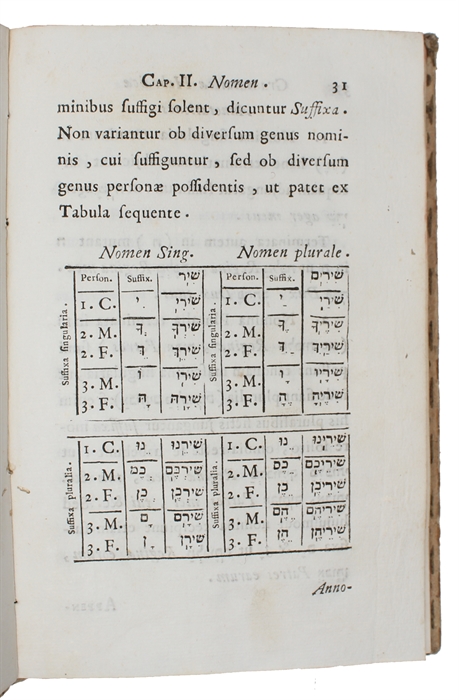 CAP. II. Nomen. 31
minibus suffigi solent, dicuntur Suffixa.
Non variantur ob diversum genus nomi-
nis, cui suffiguntur, sed ob diversum
genus personæ possidentis, ut patet ex
Tabula sequente.
Nomen Sing. Nomen plurale.
Suffixa singularia.
Person. Suffix. שִׁיר
1. C. ־ִי שִׁירִי
2. M. ךָ שִׁירְךָ
2. F. ךְ שִׁירֵךְ
3. M. וֹ שִׁירוֹ
3. F. הָּ שִׁירָהּ
Suffixa singularia.
Person. Suffix. שִׁירִים
1. C. ־ַי שִׁירַי
2. M. ךָ שִׁירֶיךָ
2. F. ךְ שִׁירַיִךְ
3. M. ו שִׁירָיו
3. F. הָ שִׁירֶיהָ
Suffixa pluralia.
1. C. נוּ שִׁירֵנוּ
2. M. כֶם שִׁירְכֶם
2. F. כֶן שִׁירְכֶן
3. M. ם שִׁירָם
3. F. ן שִׁירָן
Suffixa pluralia.
1. C. נוּ שִׁירֵינוּ
2. M. כֶם שִׁירֵיכֶם
2. F. כֶן שִׁירֵיכֶן
3. M. הֶם שִׁירֵיהֶם
3. F. הֶן שִׁירֵיהֶן
Anno-